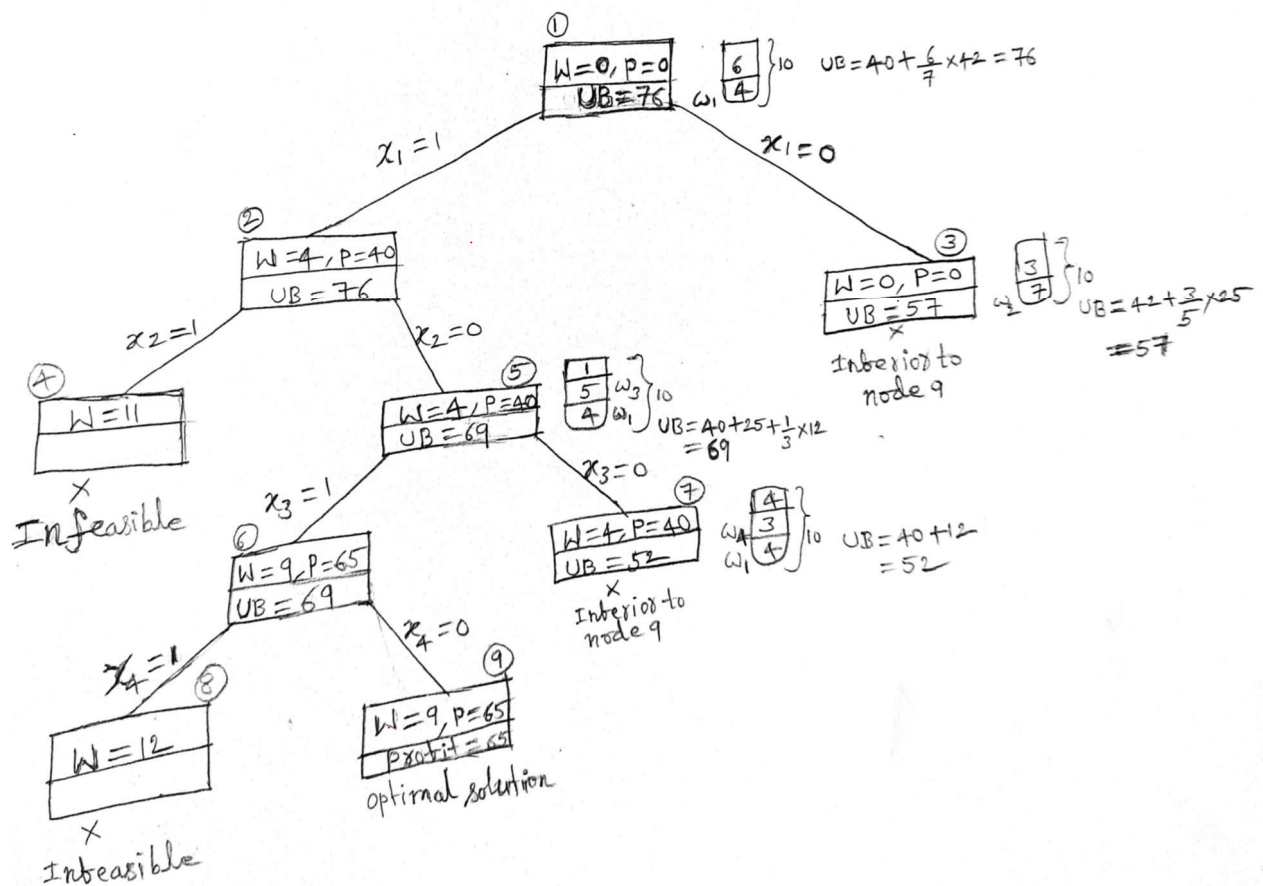 ①
W=0, P=0
UB=76
w1
6
4
10
UB=40+6/7×42=76
x1=1
x1=0
②
W=4, P=40
UB=76
③
W=0, P=0
UB=57
×
Inferior to
node 9
w2
3
7
10
UB=42+3/5×25
=57
x2=1
x2=0
④
W=11
×
Infeasible
⑤
W=4, P=40
UB=69
1
5
4
w3
w1
10
UB=40+25+1/3×12
=69
x3=1
x3=0
⑥
W=9, P=65
UB=69
⑦
W=4, P=40
UB=52
×
Inferior to
node 9
w4
w1
4
3
4
10
UB=40+12
=52
x4=1
x4=0
⑧
W=12
×
Infeasible
⑨
W=9, P=65
Profit=65
optimal solution